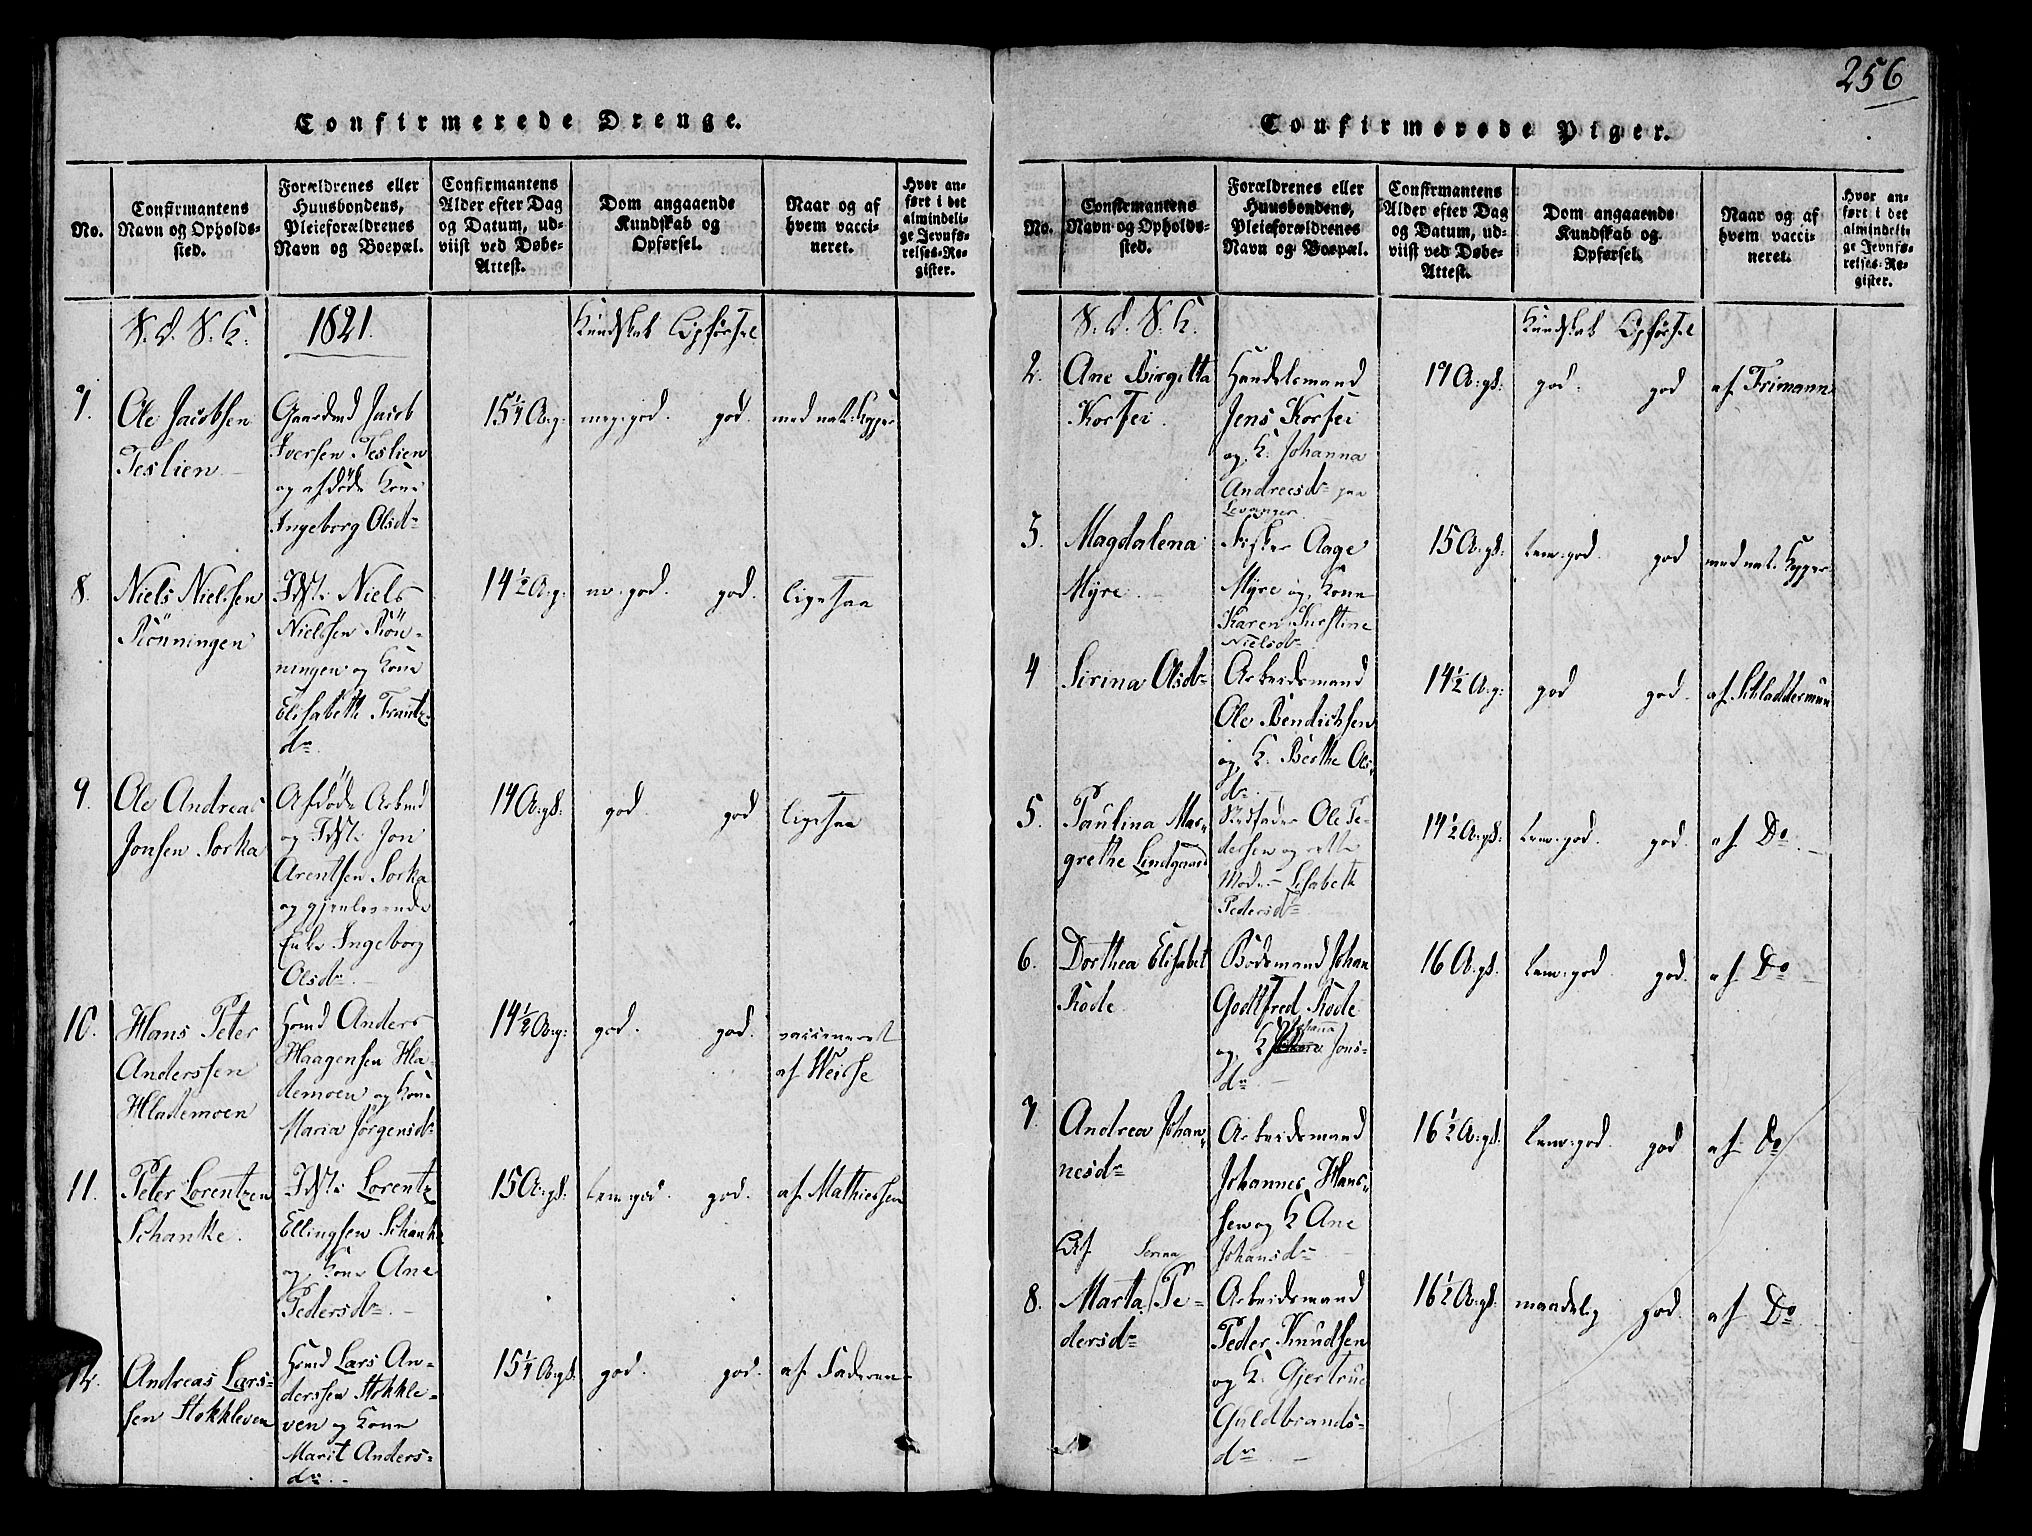 256
Confirmerede Drenge.
No.
Confirmantens
Navn og Opholds-
sted.
Forældrenes eller
Huusbondens,
Pleieforældrenes
Navn og Boepæl.
Confirmantens
Alder efter Dag
og Datum, ud-
viist ved Døbe-
Attest.
Dom angaaende
Kundskab og
Opførsel.
Naar og af
hvem vacci-
neret.
Hvor an-
ført i det
almindeli-
ge Jevnfø-
relses-Re-
gister.
1821.
Kundskab Opførsel
7.
Ole Jacobsen
Teslien
Gaardmd Jacob
Iversen Teslien
og afdöde Kone
Ingeborg Olsd
15¼ A:g:
meg:god. god.
med nat: Kopper
8.
Niels Nielssen
Rönningen
Niels
Nielssen Rön-
ningen og Kone
Elisabeth Frantz
d
14½ A:g:
m:god. god.
ligesaa
9.
Ole Andreas
Jonsen Sorka
Afdöde
og Jon
Arentsen Sorka
og gjenlevende
Enke Ingeborg
Olsd
19 A:gl:
god. god
ligesaa
10.
Hans Peter
Anderssen
Hlademoen
Huusmd Anders
Haagensen Hla-
demoen og Kone
Maria Jørgensd
14½ A:g:
god. god.
vaccineret
af Weisse
11.
Peter Lorentzen
Schanke.
Lorentz
Ellingsen Schank
og Kone Ane
Pedersd
15 A:gl:
tem:god. god.
af Mathiessen
12.
Andreas Lars-
sen Stokkleven
Huusmd Lars An-
derssen Stokkle-
ven og Kone
Marit Anders-
d
15¼ A:gl:
god. god.
af Faderen
Confirmerede Piger.
No.
Confirmantens
Navn og Opholds-
sted.
Forældrenes eller
Huusbondens,
Pleieforældrenes
Navn og Boepæl.
Confirmantens
Alder efter Dag
og Datum, ud-
viist ved Døbe-
Attest.
Dom angaaende
Kundskab og
Opførsel.
Naar og af
hvem vacci-
neret.
Hvor an-
ført i det
almindeli-
ge Jevnfø-
relses-Re-
gister.
Kundskab Opførsel
2.
Ane Birgitta
Korsei.
Handelsmand
Jens Korsei
og K. Johanna
Andreesd paa
Levanger
19 A:gl:
god. god
af Frimann
3.
Magdalena
Myre
Fisker Aage
Myre og Kone
Karen Kirstine
Nielsd
15 A:gl:
tem:god. god
med nat. Kopper
4
Sirina Olsd
Arbeidsmand
Ole Bendichsen
og K. Berthe Ols
d
14½ A:g:
god god.
af Schladdermun
5.
Paulina Mar-
grethe Lindgaard
Stedfader Ole Pe-
dersen og rette
Moder Lisabeth
Pedersd
14½ A:gl:
tem:god. god.
af Do
6.
Dorthea Elisabet
Rode
Bödsmand Johan
Godtfred Rode
og K Johanna Jons-
d
16 A:gl.
tem:god god.
af Do
7.
Andrea Johan-
nesd
Arbeidsmand
Johannes Hans-
sen og K Ane
Johansd
16½ A:gl.
tem:god. god
af Do
8.
Serina
Marta Pe-
dersd
Arbeidsmand
Peder Knudsen
og K. Gjertrue
Guldbrands-
d
16½ A:gl:
maadelig god.
af Do